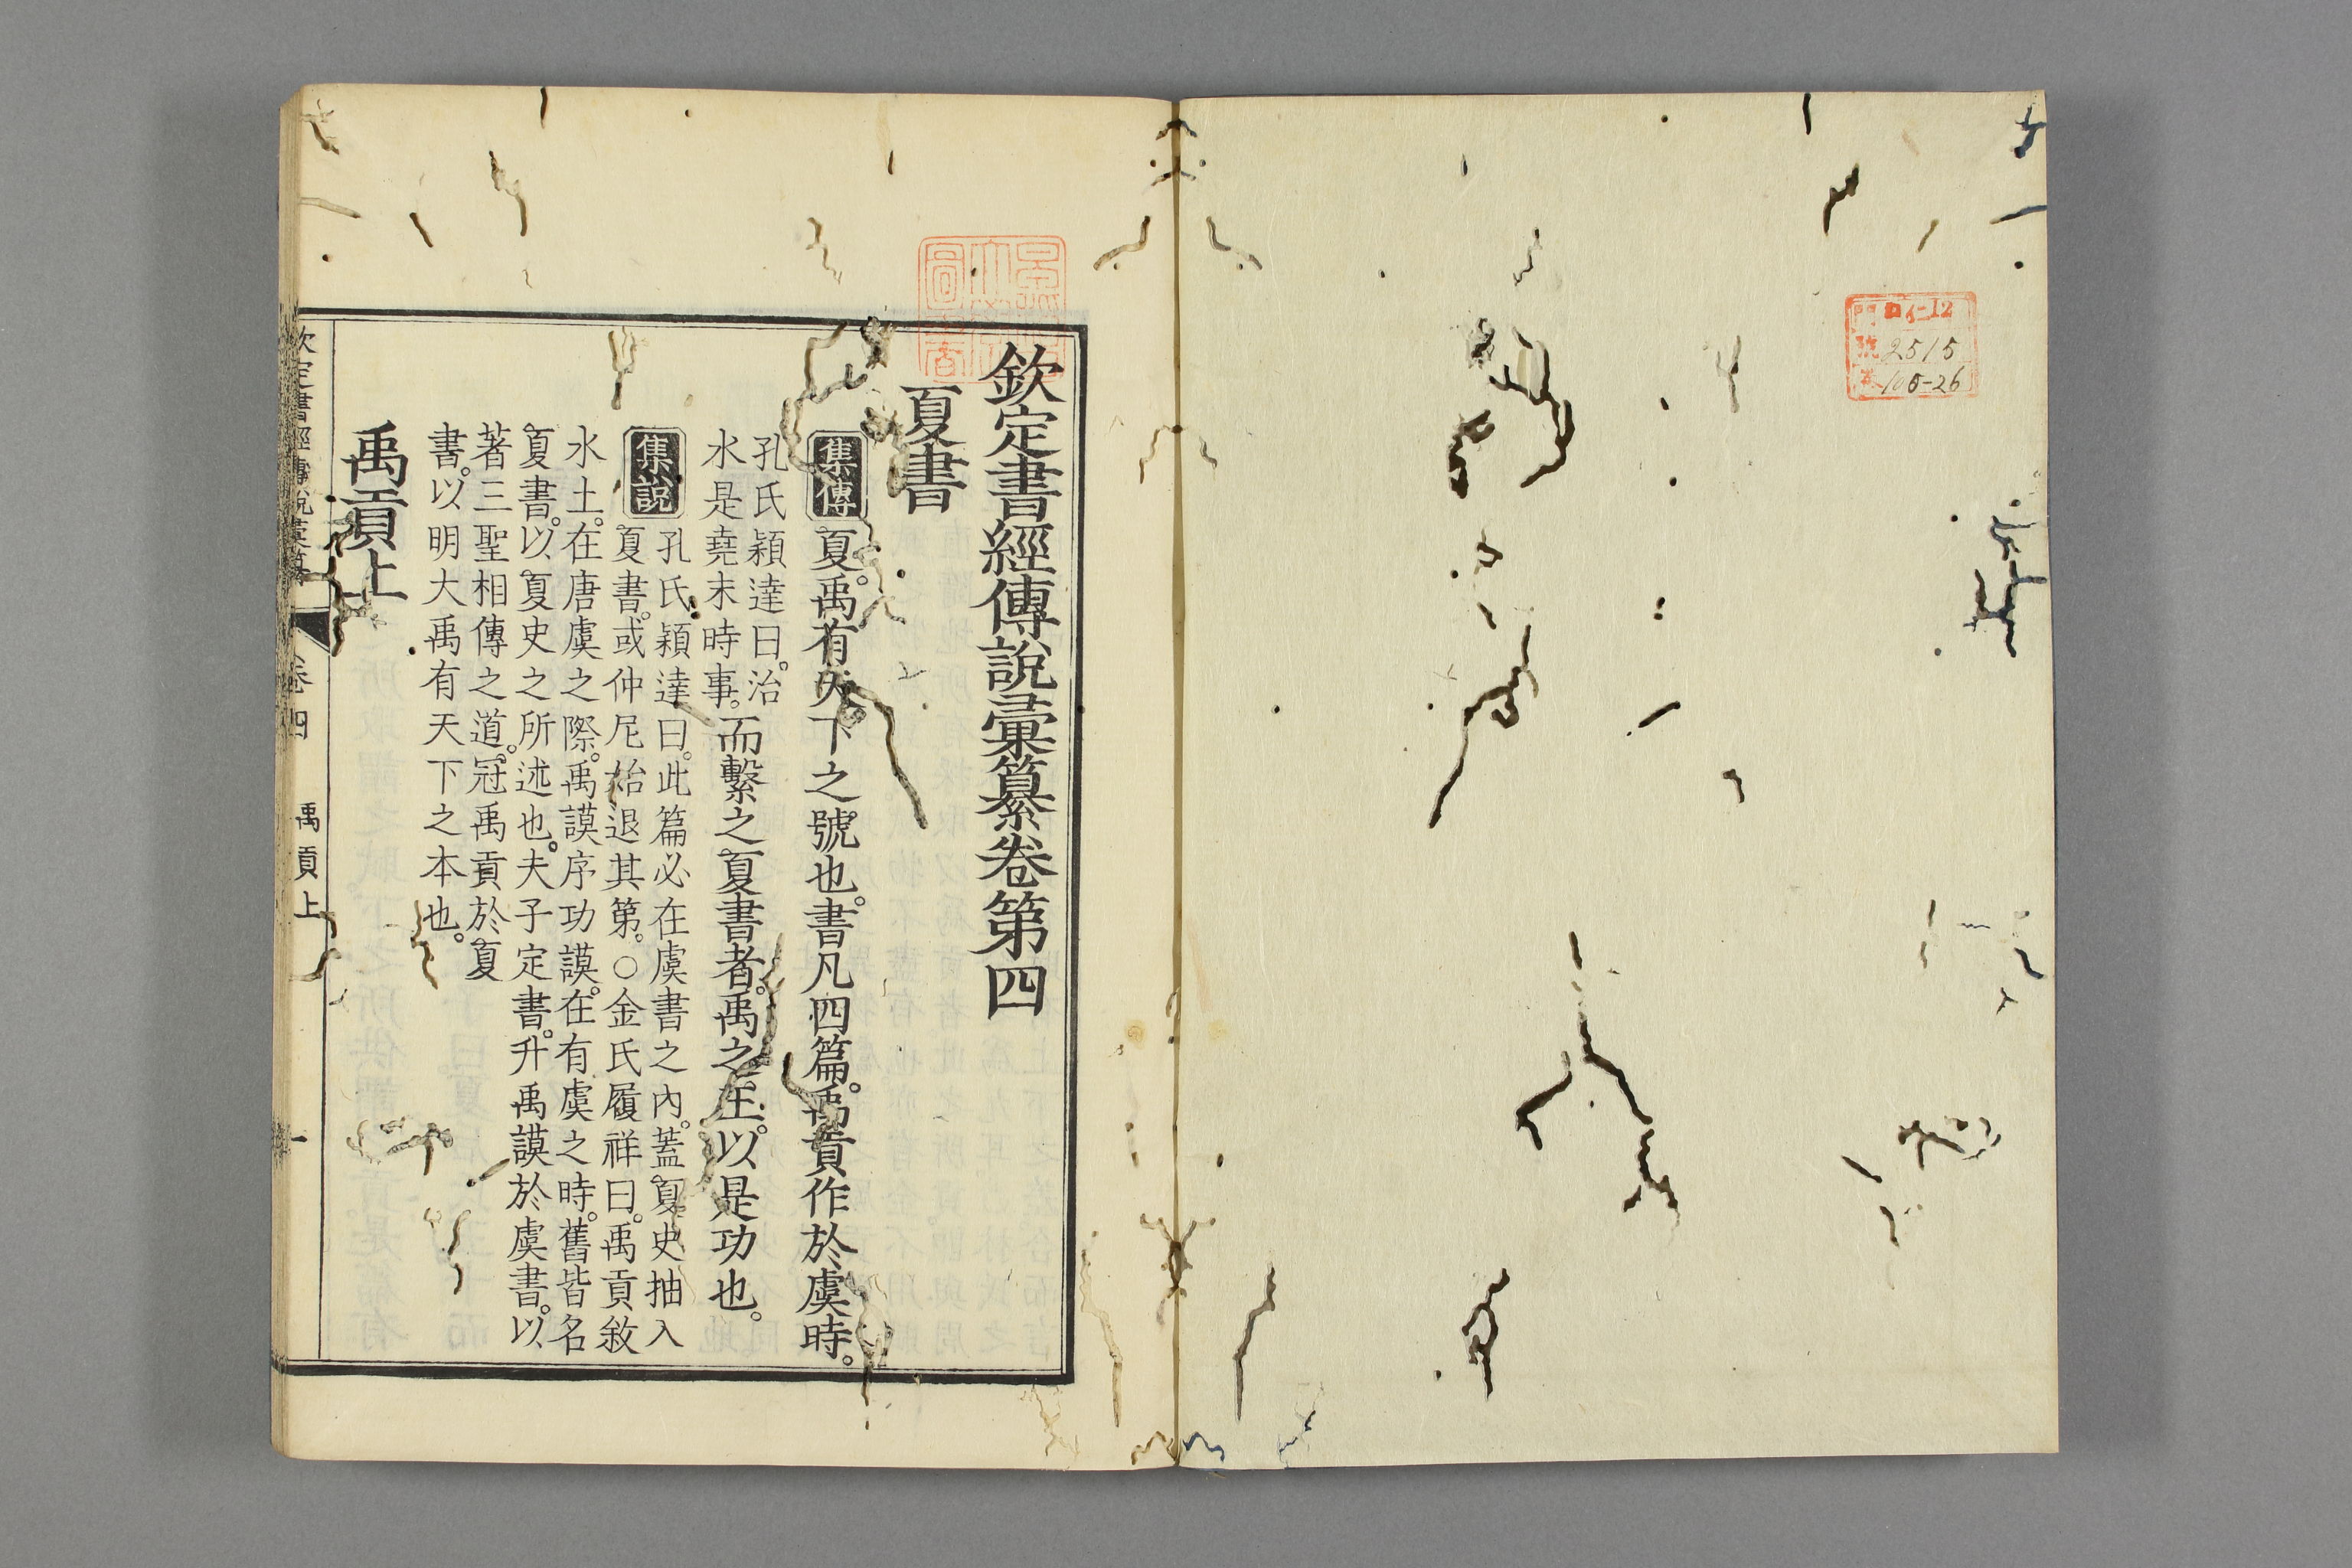 門 ロイ-12
號 2515
105-26
欽定書經傳說彙纂卷第四
夏書
集傳 夏。禹有天下之號也。書凡四篇。禹貢作於虞時。
而繫之夏書者。禹之王。以是功也。
孔氏穎達曰。治
水是堯末時事。
集說 孔氏穎達曰。此篇必在虞書之內。蓋夏史抽入
夏書。或仲尼始退其第。○金氏履祥曰。禹貢敘
水土。在唐虞之際。禹謨序功謨。在有虞之時。舊皆名
夏書。以夏史之所述也。夫子定書。升禹謨於虞書。以
著三聖相傳之道。冠禹貢於夏
書。以明大禹有天下之本也。
禹貢上
欽定書經傳說彙纂 卷四 禹貢上 一